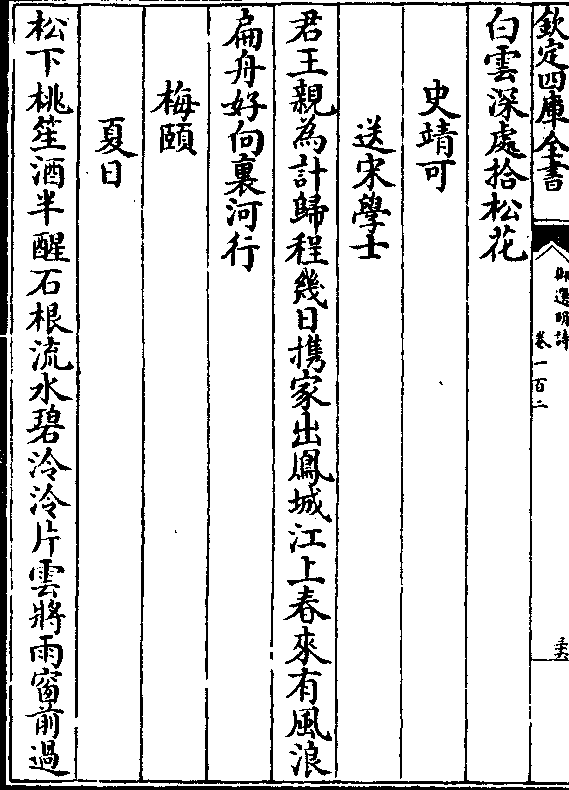 欽定四庫全書
御選明詩
卷一百二
白雲深處拾松花
史靖可
送宋學士
君王親為計歸程幾日携家出鳳城江上春來有風浪
扁舟好向裏河行
梅頤
夏日
松下桃笙酒半醒石根流水碧泠泠片雲將雨窗前過